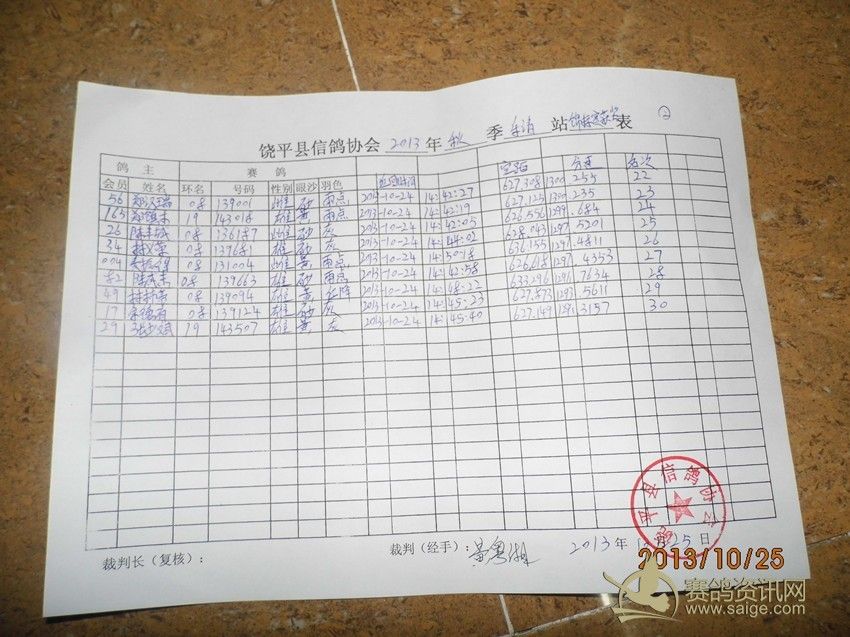 饶平县信鸽协会 2013 年 秋 季 站 表 ②
鸽主 赛鸽
会员 姓名 环名 号码 性别 眼沙 羽色 空距 分速 名次
56 08 139001 雄 砂 雨点 2013-10-24 14:42:27 627.308 1300.255 22
165 19 143018 雄 黄 雨点 2013-10-24 14:42:19 627.125 1300.235 23
26 08 136187 砂 灰 2013-10-24 14:42:05 626.556 1299.684 24
34 08 139681 雄 灰 2013-10-24 14:44:02 628.043 1297.5201 25
004 08 131004 雄 黄 雨点 2013-10-24 14:50:18 1297.4811 26
82 08 139663 雄 砂 雨点 2013-10-24 14:42:58 626.618 1297.4353 27
49 08 139094 雄 黄 2013-10-24 14:48:22 633.296 1296.7634 28
17 08 139124 雄 砂 灰 2013-10-24 14:45:23 627.873 1293.5611 29
29 19 143507 雄 黄 灰 2013-10-24 14:45:40 627.149 1291.3157 30
裁判长（复核）： 裁判（经手）： 2013 年 25 日
饶平县信鸽协会
2013/10/25
赛鸽资讯网
www.saige.com